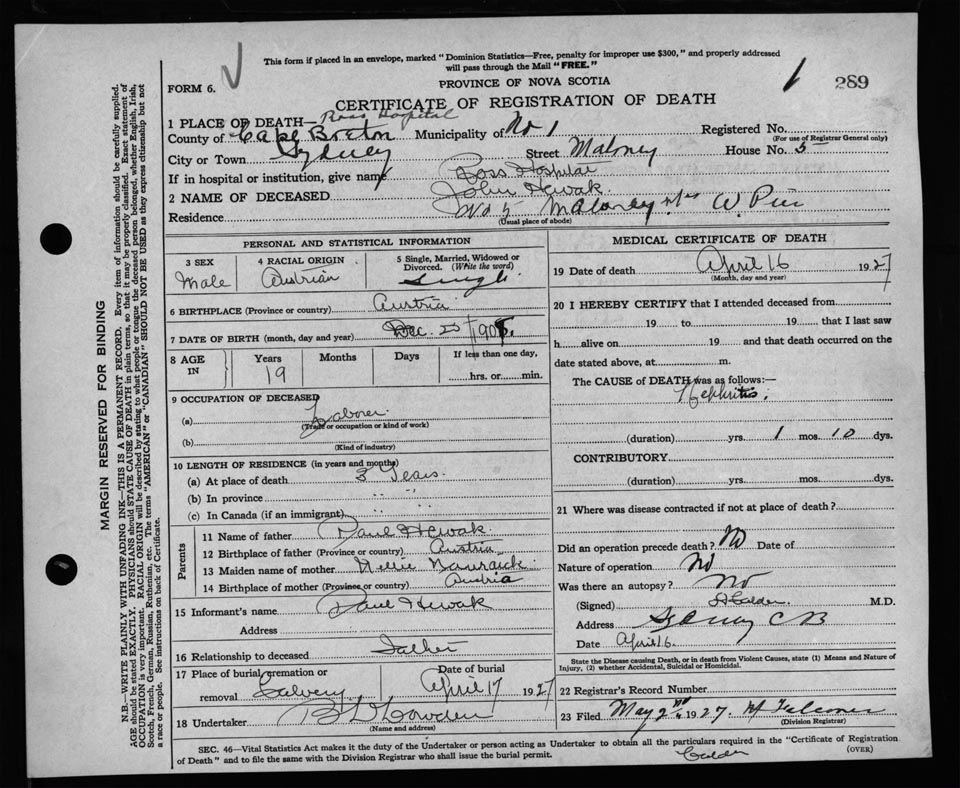 This form if placed in an envelope, marked "Dominion Statistics—Free, penalty for improper use $300," and properly addressed
will pass through the Mail "FREE."
FORM 6.
PROVINCE OF NOVA SCOTIA
1 289
CERTIFICATE OF REGISTRATION OF DEATH
1 PLACE OF DEATH— Ross Hospital
County of Cape Breton Municipality of No 1 Registered No.
(For use of Registrar General only)
City or Town Sydney Street Maloney House No. 5
If in hospital or institution, give name Ross Hospital
2 NAME OF DECEASED John Hewak
Residence No 5 Maloney W. Pier
(Usual place of abode)
PERSONAL AND STATISTICAL INFORMATION
3 SEX 4 RACIAL ORIGIN 5 Single, Married, Widowed or
Divorced. (Write the word)
Male Austrian Single
6 BIRTHPLACE (Province or country) Austria
7 DATE OF BIRTH (month, day and year) Dec. 25
8 AGE IN Years Months Days If less than one day,
19 hrs. or min.
9 OCCUPATION OF DECEASED
(a) Laborer
(Trade or occupation or kind of work)
(b)
(Kind of industry)
10 LENGTH OF RESIDENCE (in years and months)
(a) At place of death 3 Years.
(b) In province " "
(c) In Canada (if an immigrant) " "
Parents
11 Name of father Paul Hewak
12 Birthplace of father (Province or country) Austria
13 Maiden name of mother Nellie
14 Birthplace of mother (Province or country) Austria
15 Informant's name Paul Hewak
Address
16 Relationship to deceased Father
17 Place of burial, cremation or Date of burial
removal Calvery April 17 1927
18 Undertaker
(Name and address)
MEDICAL CERTIFICATE OF DEATH
19 Date of death April 16 1927
(Month, day and year)
20 I HEREBY CERTIFY that I attended deceased from
19 to 19 that I last saw
h alive on 19 and that death occurred on the
date stated above, at m.
The CAUSE of DEATH was as follows:—
Nephritis;
(duration) yrs. 1 mos. 10 dys.
CONTRIBUTORY
(duration) yrs. mos. dys.
21 Where was disease contracted if not at place of death?
Did an operation precede death? No Date of
Nature of operation No
Was there an autopsy? No
(Signed) Calder M.D.
Address Sydney CB
Date April 16.
State the Disease causing Death, or in death from Violent Causes, state (1) Means and Nature of
Injury, (2) whether Accidental, Suicidal or Homicidal.
22 Registrar's Record Number
23 Filed May 2nd 1927 Falconer
(Division Registrar)
SEC. 46—Vital Statistics Act makes it the duty of the Undertaker or person acting as Undertaker to obtain all the particulars required in the "Certificate of Registration
of Death" and to file the same with the Division Registrar who shall issue the burial permit.
(OVER)
Calder
MARGIN RESERVED FOR BINDING
N.B.—WRITE PLAINLY WITH UNFADING INK—THIS IS A PERMANENT RECORD. Every item of information should be carefully supplied.
AGE should be stated EXACTLY. PHYSICIANS should STATE CAUSE OF DEATH in plain terms, so that it may be properly classified. Exact statement of
OCCUPATION is very important. RACIAL ORIGIN will be described by stating to what people or tongue the deceased person belonged, whether English, Irish,
Scotch, French, German, Russian, Ruthenian, etc. The terms "AMERICAN" or "CANADIAN" SHOULD NOT BE USED as they express citizenship but not
a race or people. See instructions on back of Certificate.